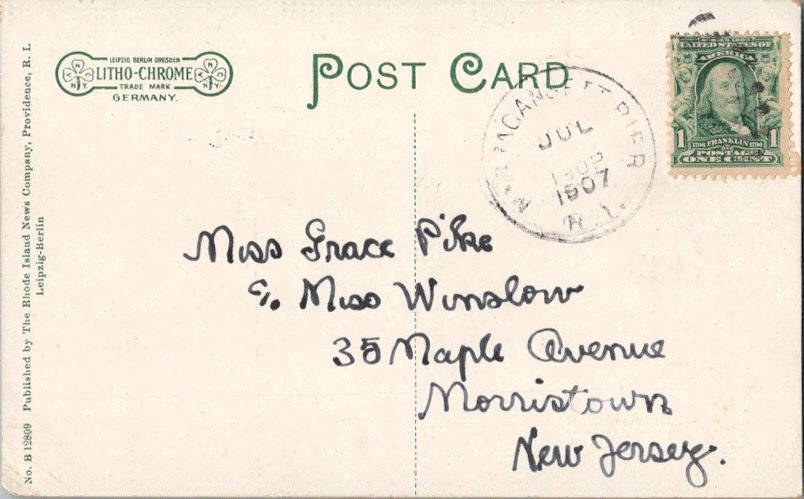 LEIPZIG BERLIN DRESDEN
LITHO-CHROME
TRADE MARK
GERMANY.
N N
N.Y. N.Y.
POST CARD
NARRAGANSETT PIER
JUL
1907
R.I.
UNITED STATES OF
AMERICA
1 1706 FRANKLIN 1790 1
POSTAGE
ONE CENT
Miss Grace Pike
c/o Miss Winslow
35 Maple Avenue
Morristown
New Jersey.
No. B 12809 Published by The Rhode Island News Company, Providence, R. I.
Leipzig-Berlin